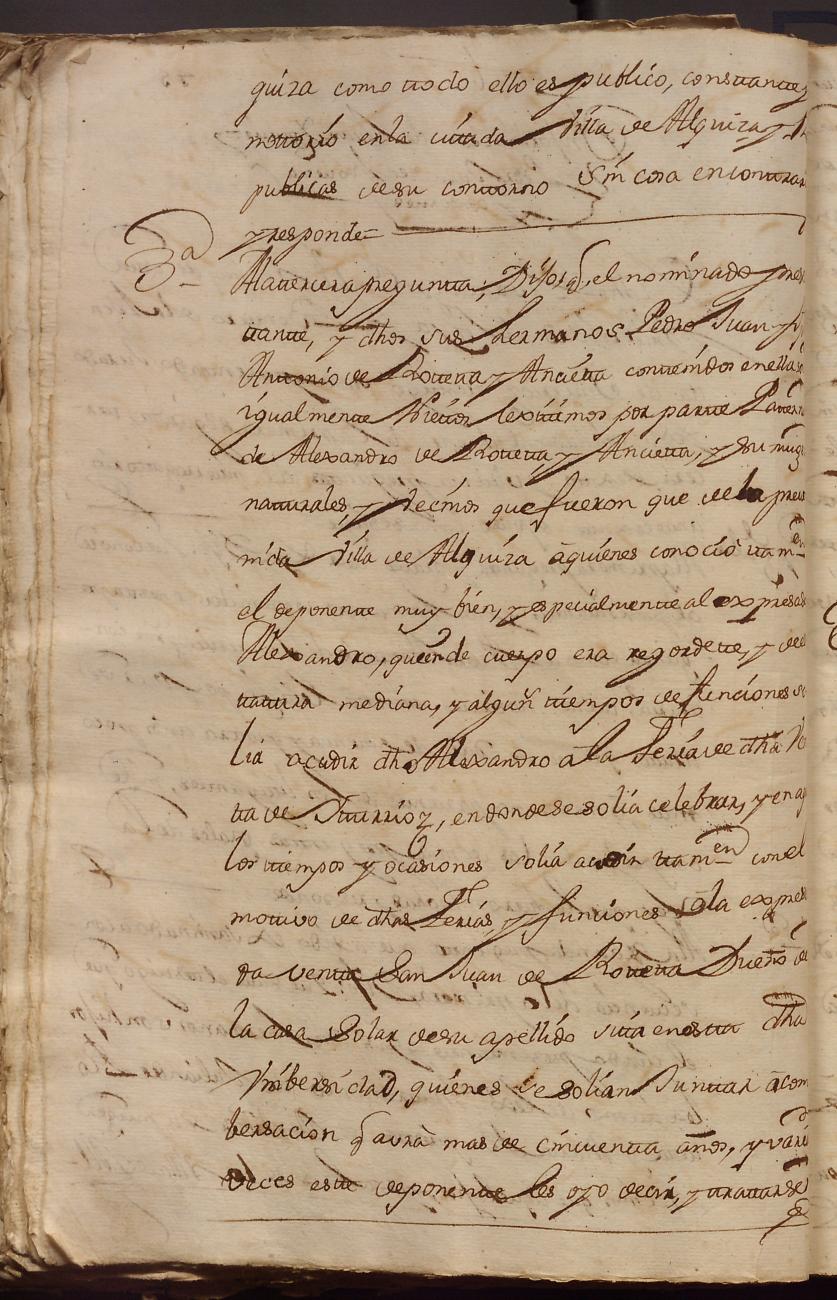 guiza como ttodo ello es publico, consttante y
nottorio en la cittada Villa de Alquiza y
publicas de su conttorno Sin cosa en conttrar
y responde=
3ª
A la tercera preguntta, Dijo q el nominado pres
ttante, y dhos sus hermanos Pedro Juan y
Anttonio de Rottetta y Ancietta conttenidos en ella
igualmente Niettos lexitimos por partte Patern
de Alexandro de Rottetta, y Ancietta, y su mug
natturales, y vecinos que fueron que de la preu
nida Villa de Alquiza a quienes conocio ttamen
el deponentte muy bien, y especialmentte al expresa
Alexandro, quien de cuerpo era regordette, y de
ttattura mediana, y algun ttiempos de funciones so
lia acudir dho Alexandro a la Feria de dha Ve
tta de Itturrioz, en donde se solia celebrar, y en aq
los ttiempos y ocasiones solia acudir ttamen con el
mottivo de dhas Ferias, y funciones a la expres
da ventta San Juan de Rottetta Dueño de
la casa Solar de su apellido sitta en estta dha
Vnibersidad, quienes se solian Junttar a com
bersacion q aura mas de cinquentta años, y vari
veces estte deponentte les oyo decir, y ttrattarse